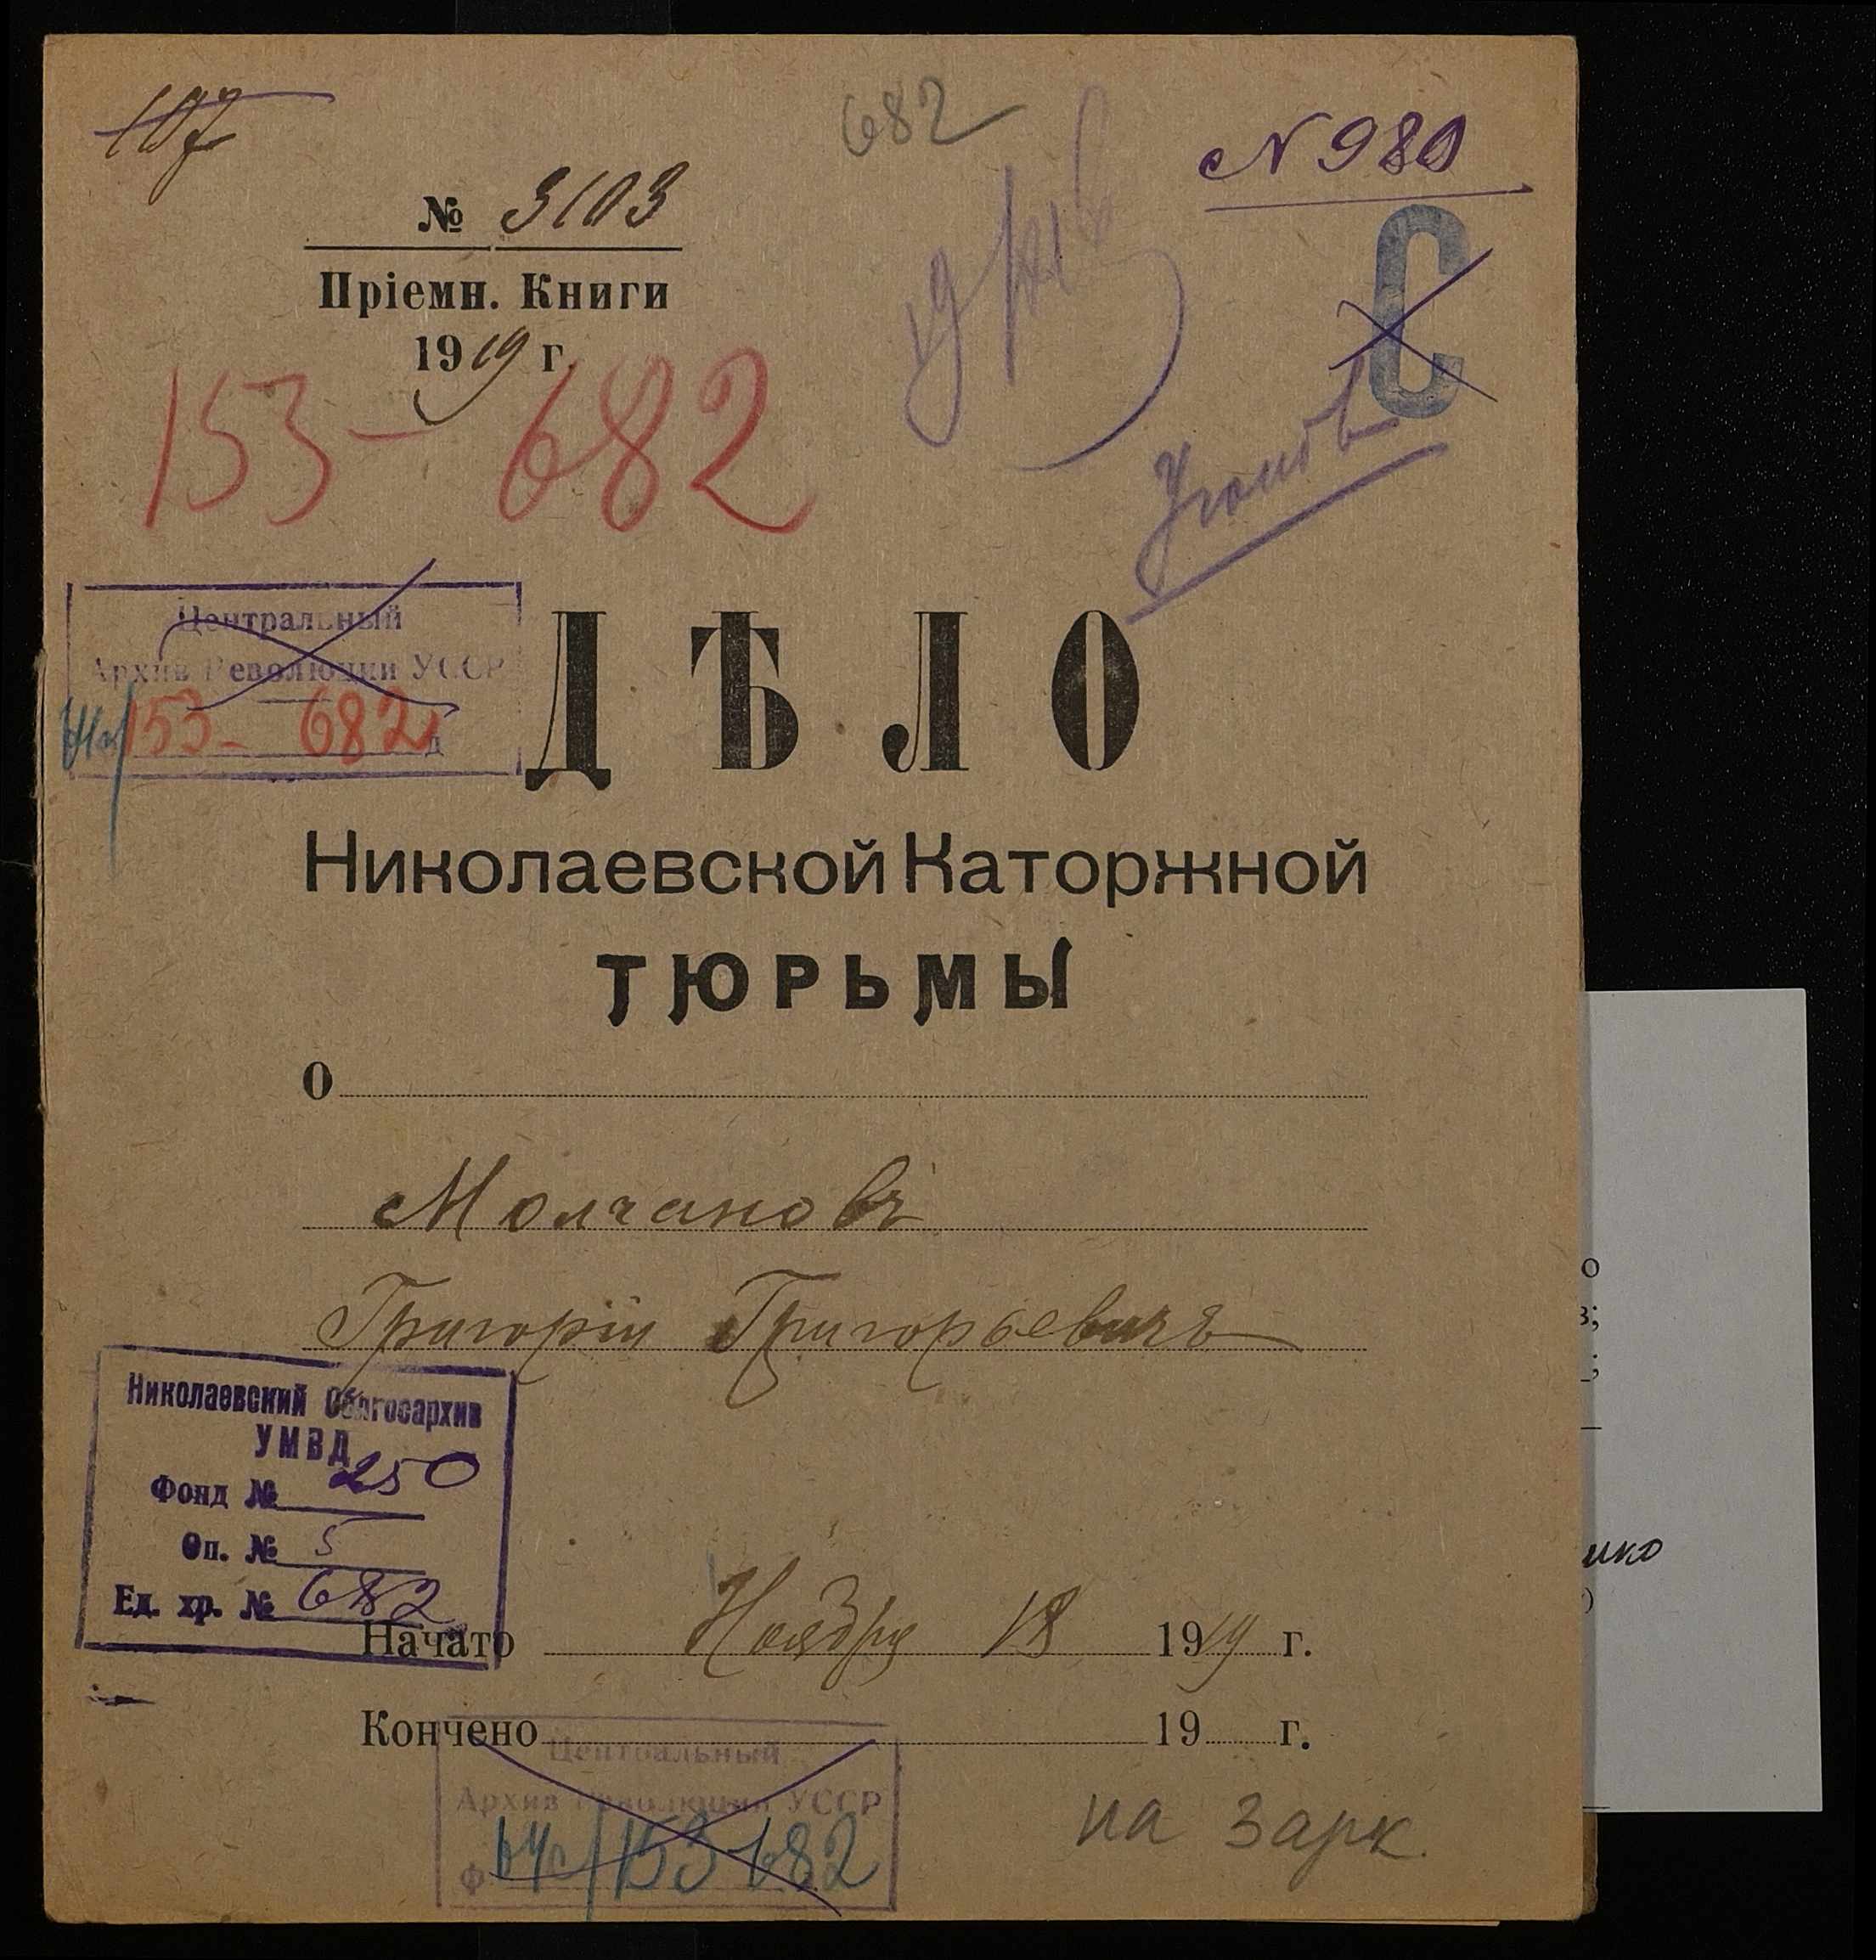 107
682
N 980
№ 3103
Пріемн. Книги
1919 г.
С
153 - 682
Центральный
Архив Революции УССР
153 - 682 д
ДѢЛО
Николаевской Каторжной
ТЮРЬМЫ
О
Молчановъ
Григорій Григорьевичъ
Николаевский Облгосархив
УМВД
Фонд № 250
Оп. № 5
Ед. хр. № 682
Начато Ноября 18 1919 г.
Кончено 19 г.
Центральный
Архив Революции УССР
Ф 153 682
на зарк.